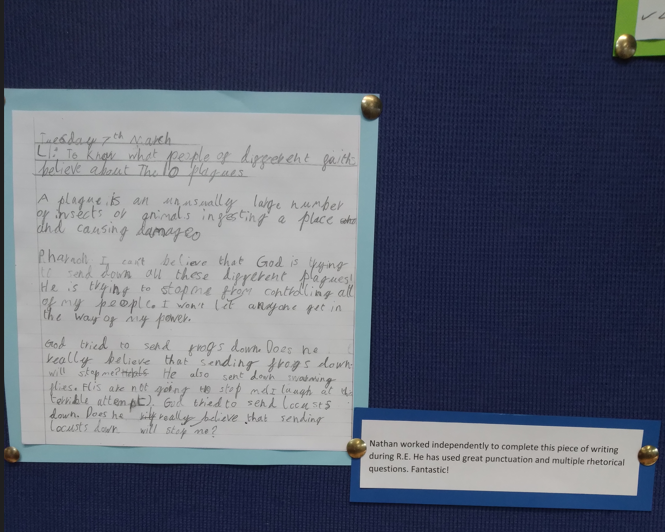 Tuesday 7th March
L.I: To know what people of different faiths
believe about The 10 plagues
A plague is an unusually large number
of insects or animals infesting a place
and causing damage.
Pharaoh I can't believe that God is trying
to send down all these different plagues!
He is trying to stop me from controlling all
of my people. I won't let anyone get in
the way of my power.
God tried to send frogs down. Does he
really believe that sending frogs down
will stop me? He also sent down swarming
flies. His are not going to stop me. I laugh at the
terrible attempt. God tried to send locusts
down. Does he really believe that sending
locusts down will stop me?
Nathan worked independently to complete this piece of writing
during R.E. He has used great punctuation and multiple rhetorical
questions. Fantastic!